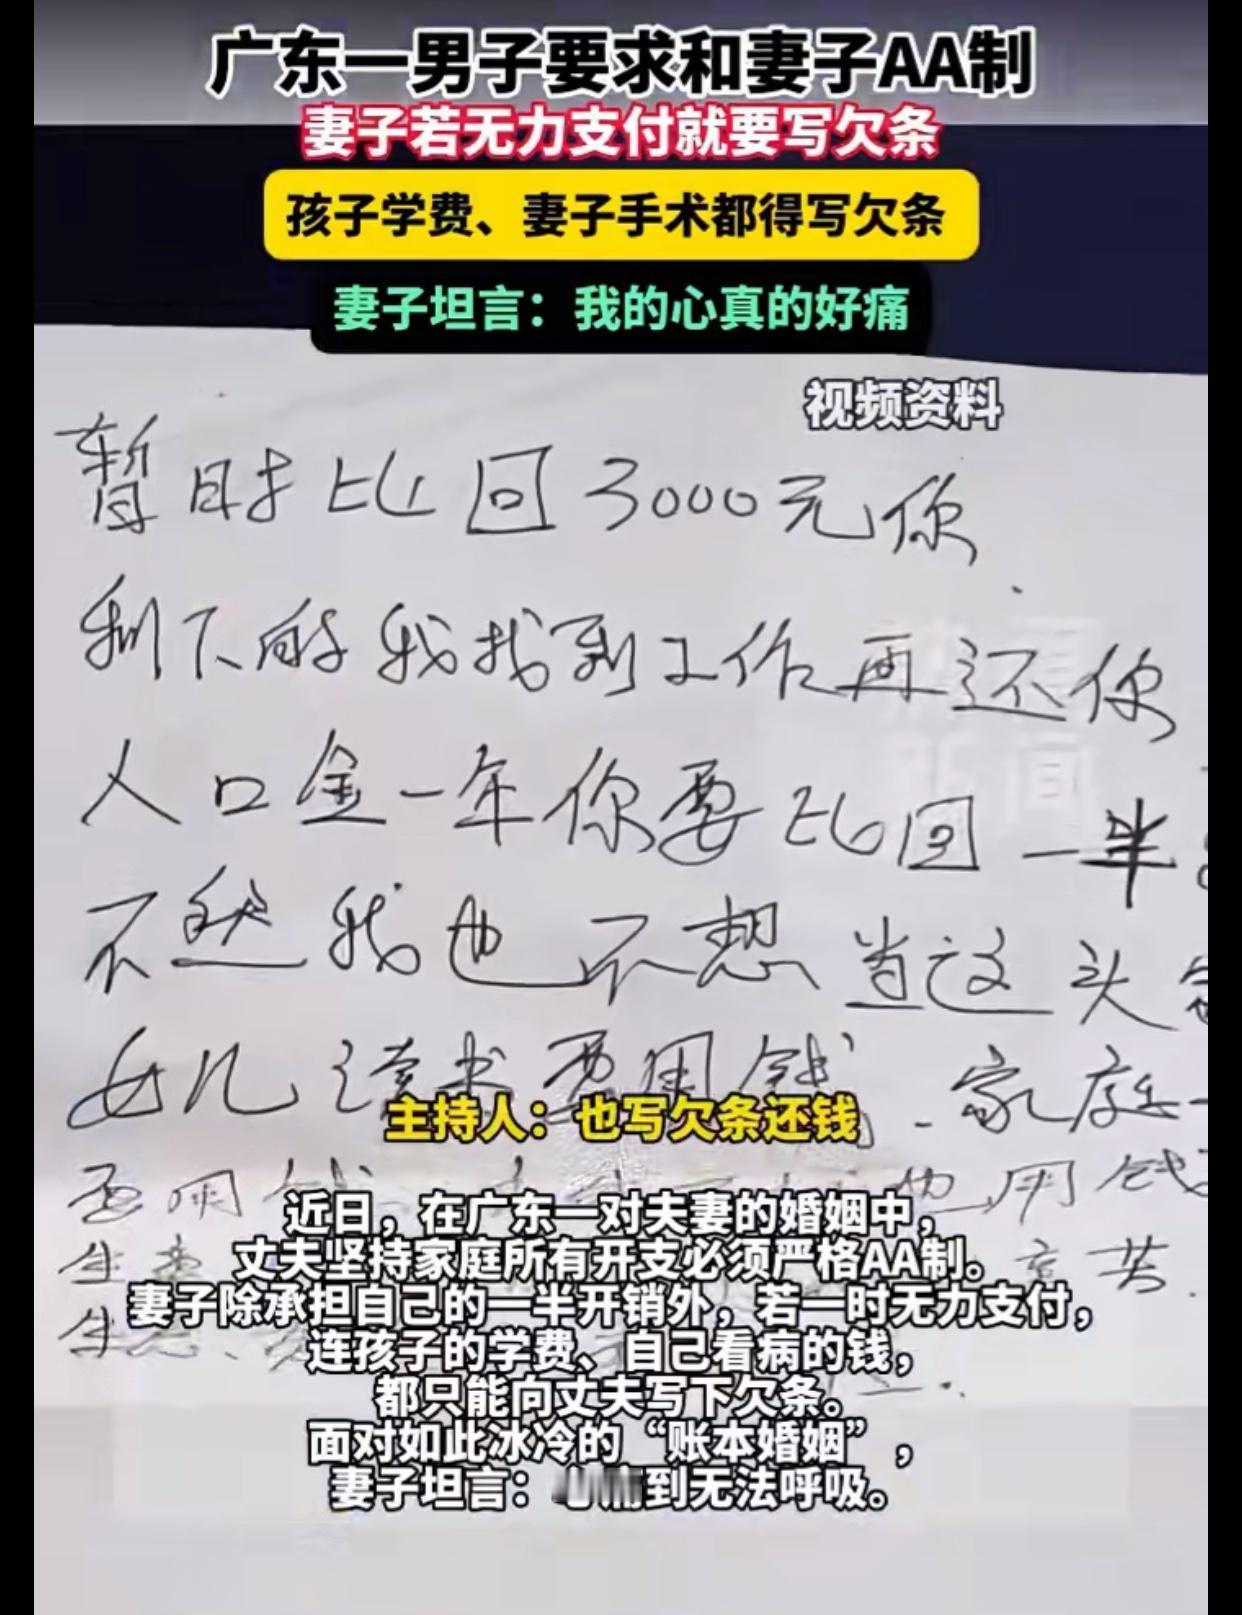 广东一男子要求和妻子AA制
妻子若无力支付就要写欠条
孩子学费、妻子手术都得写欠条
妻子坦言：我的心真的好痛
视频资料
暂时比回3000元你
剩下的我找到工作再还你
人口金一年你要比回一半
不然我也不想当这头
女儿读书要用钱、家庭
主持人：也写欠条还钱
要用钱 也用钱
近日，在广东一对夫妻的婚姻中，
丈夫坚持家庭所有开支必须严格AA制。
妻子除承担自己的一半开销外，若一时无力支付，
连孩子的学费、自己看病的钱，
都只能向丈夫写下欠条。
面对如此冰冷的“账本婚姻”，
妻子坦言：到无法呼吸。